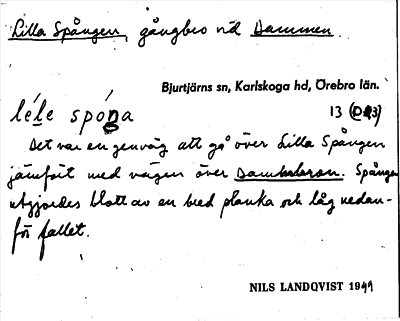 Lilla Spången, gångbro vid Dammen
Bjurtjärns sn, Karlskoga hd, Örebro län.
léle spóŋa 13
Det var en genväg att gå över Lilla Spången
jämfört med vägen över Dambron. Spången
utgjordes blott av en bred planka och låg nedan-
för fallet.
NILS LANDQVIST 1941